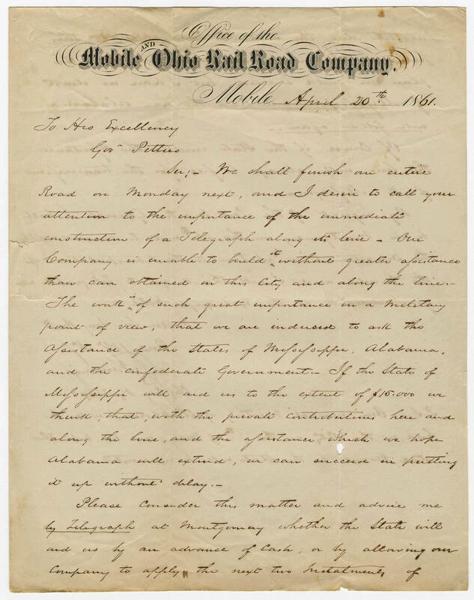 Office of the
Mobile AND Ohio Rail Road Company.
Mobile April 20th 1861.
To His Excellency
Gov Pettus
Sir,- We shall finish our entire
Road on Monday next, and I desire to call your
attention to the importance of the immediate
construction of a Telegraph along its line - Our
Company is unable to build it without greater assistance
than can obtained in this City and along the line.
The work is of such great importance in a Military
point of view, that we are induced to ask the
Assistance of the States of Mississippi, Alabama,
and the Confederate Government - If the State of
Mississippi will aid us to the extent of $15.000 we
think that, with the private contributions here and
along the line, and the assistance which we hope
Alabama will extend, we can succeed in putting
it up without delay.-
Please consider this matter and advise me
by Telegraph at Montgomery whether the State will
aid us by an advance of Cash, or by allowing our
Company to apply the next two Instalments of